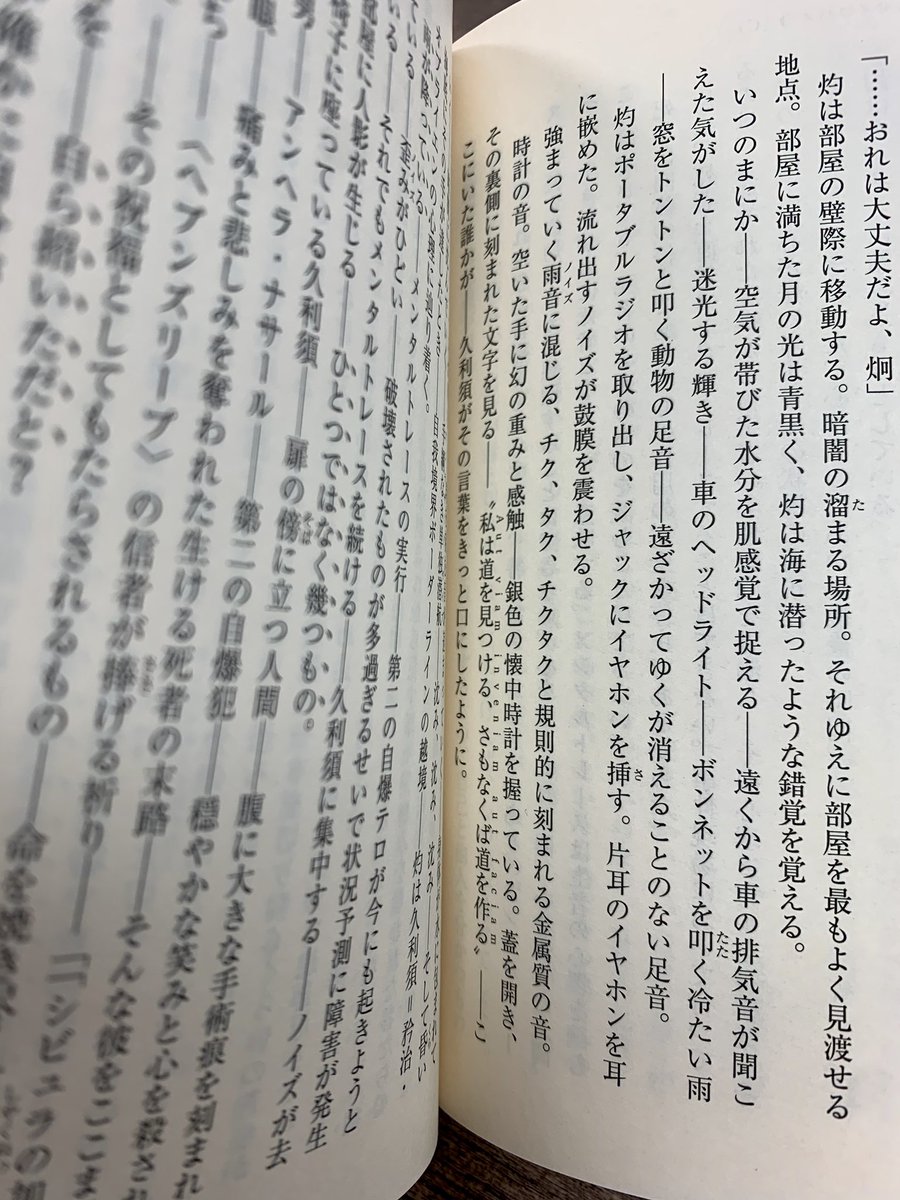 「……おれは大丈夫だよ、炯」
灼は部屋の壁際に移動する。暗闇の溜まる場所。それゆえに部屋を最もよく見渡せる
地点。部屋に満ちた月の光は青黒く、灼は海に潜ったような錯覚を覚える。
いつのまにか――空気が帯びた水分を肌感覚で捉える――遠くから車の排気音が聞こ
えた気がした――迷光する輝き――車のヘッドライト――ボンネットを叩く冷たい雨
――窓をトントンと叩く動物の足音――遠ざかってゆくが消えることのない足音。
灼はポータブルラジオを取り出し、ジャックにイヤホンを挿す。片耳のイヤホンを耳
に嵌めた。流れ出すノイズが鼓膜を震わせる。
強まっていく雨音に混じる、チク、タク、チクタクと規則的に刻まれる金属質の音。
時計の音。空いた手に幻の重みと感触――銀色の懐中時計を握っている。蓋を開き、
その裏側に刻まれた文字を見る――〝私は道を見つける、さもなくば道を作る〟――こ
こにいた誰かが――久利須がその言葉をきっと口にしたように。
沈み、沈み、沈み――そして昏い
自我境界ボーダーラインの越境――灼は久利須=矜治・
オブライエンの心理に辿り着く。
雨が降っている――メンタルトレースの実行――第二の自爆テロが今にも起きようと
ている――歪みがひどい――破壊されたものが多過ぎるせいで状況予測に障害が発生
いる――それでもメンタルトレースを続ける――久利須に集中する――ノイズが去
部屋に人影が生じる――ひとつではなく幾つもの。
椅子に座っている久利須――扉の傍に立つ人間――腹に大きな手術痕を刻まれ
アンヘラ・ナサール――第二の自爆犯――穏やかな笑みと心を殺され
痛みと悲しみを奪われた生ける死者の末路――そんな彼をここま
〈ヘブンズリープ〉の信者が捧げる祈り――「『シビュラの
その祝福としてもたらされるもの――命を
自ら招いただと?